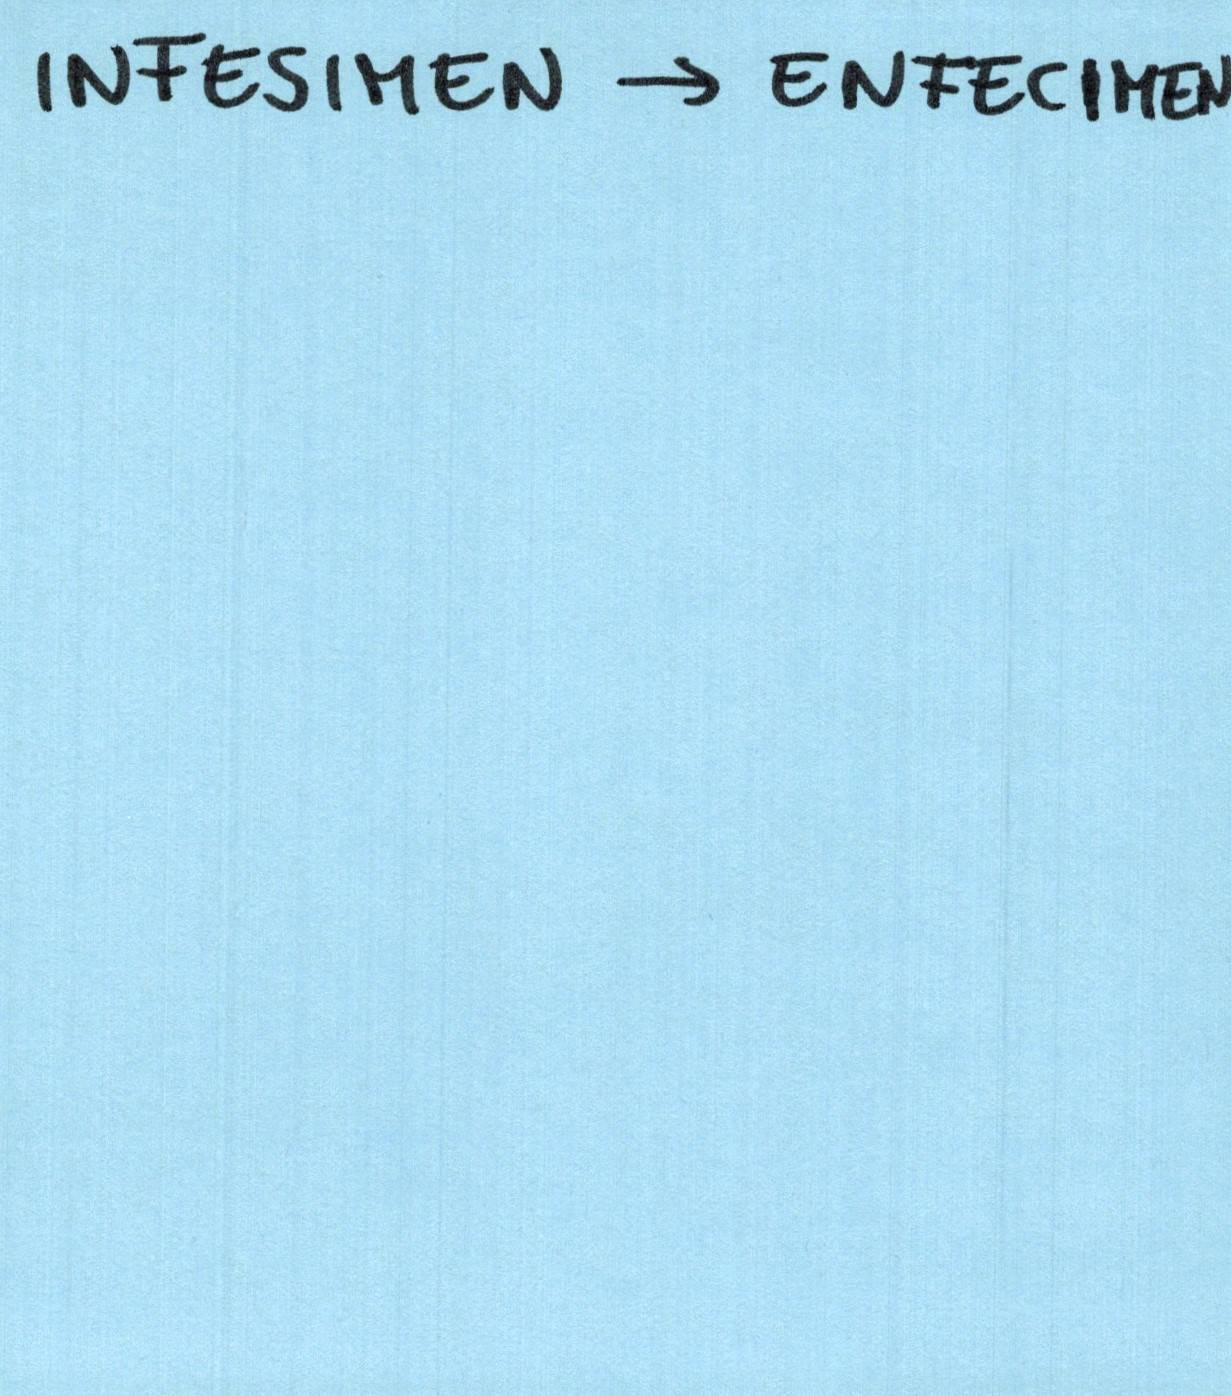 INFESIMEN → ENFECIMEN